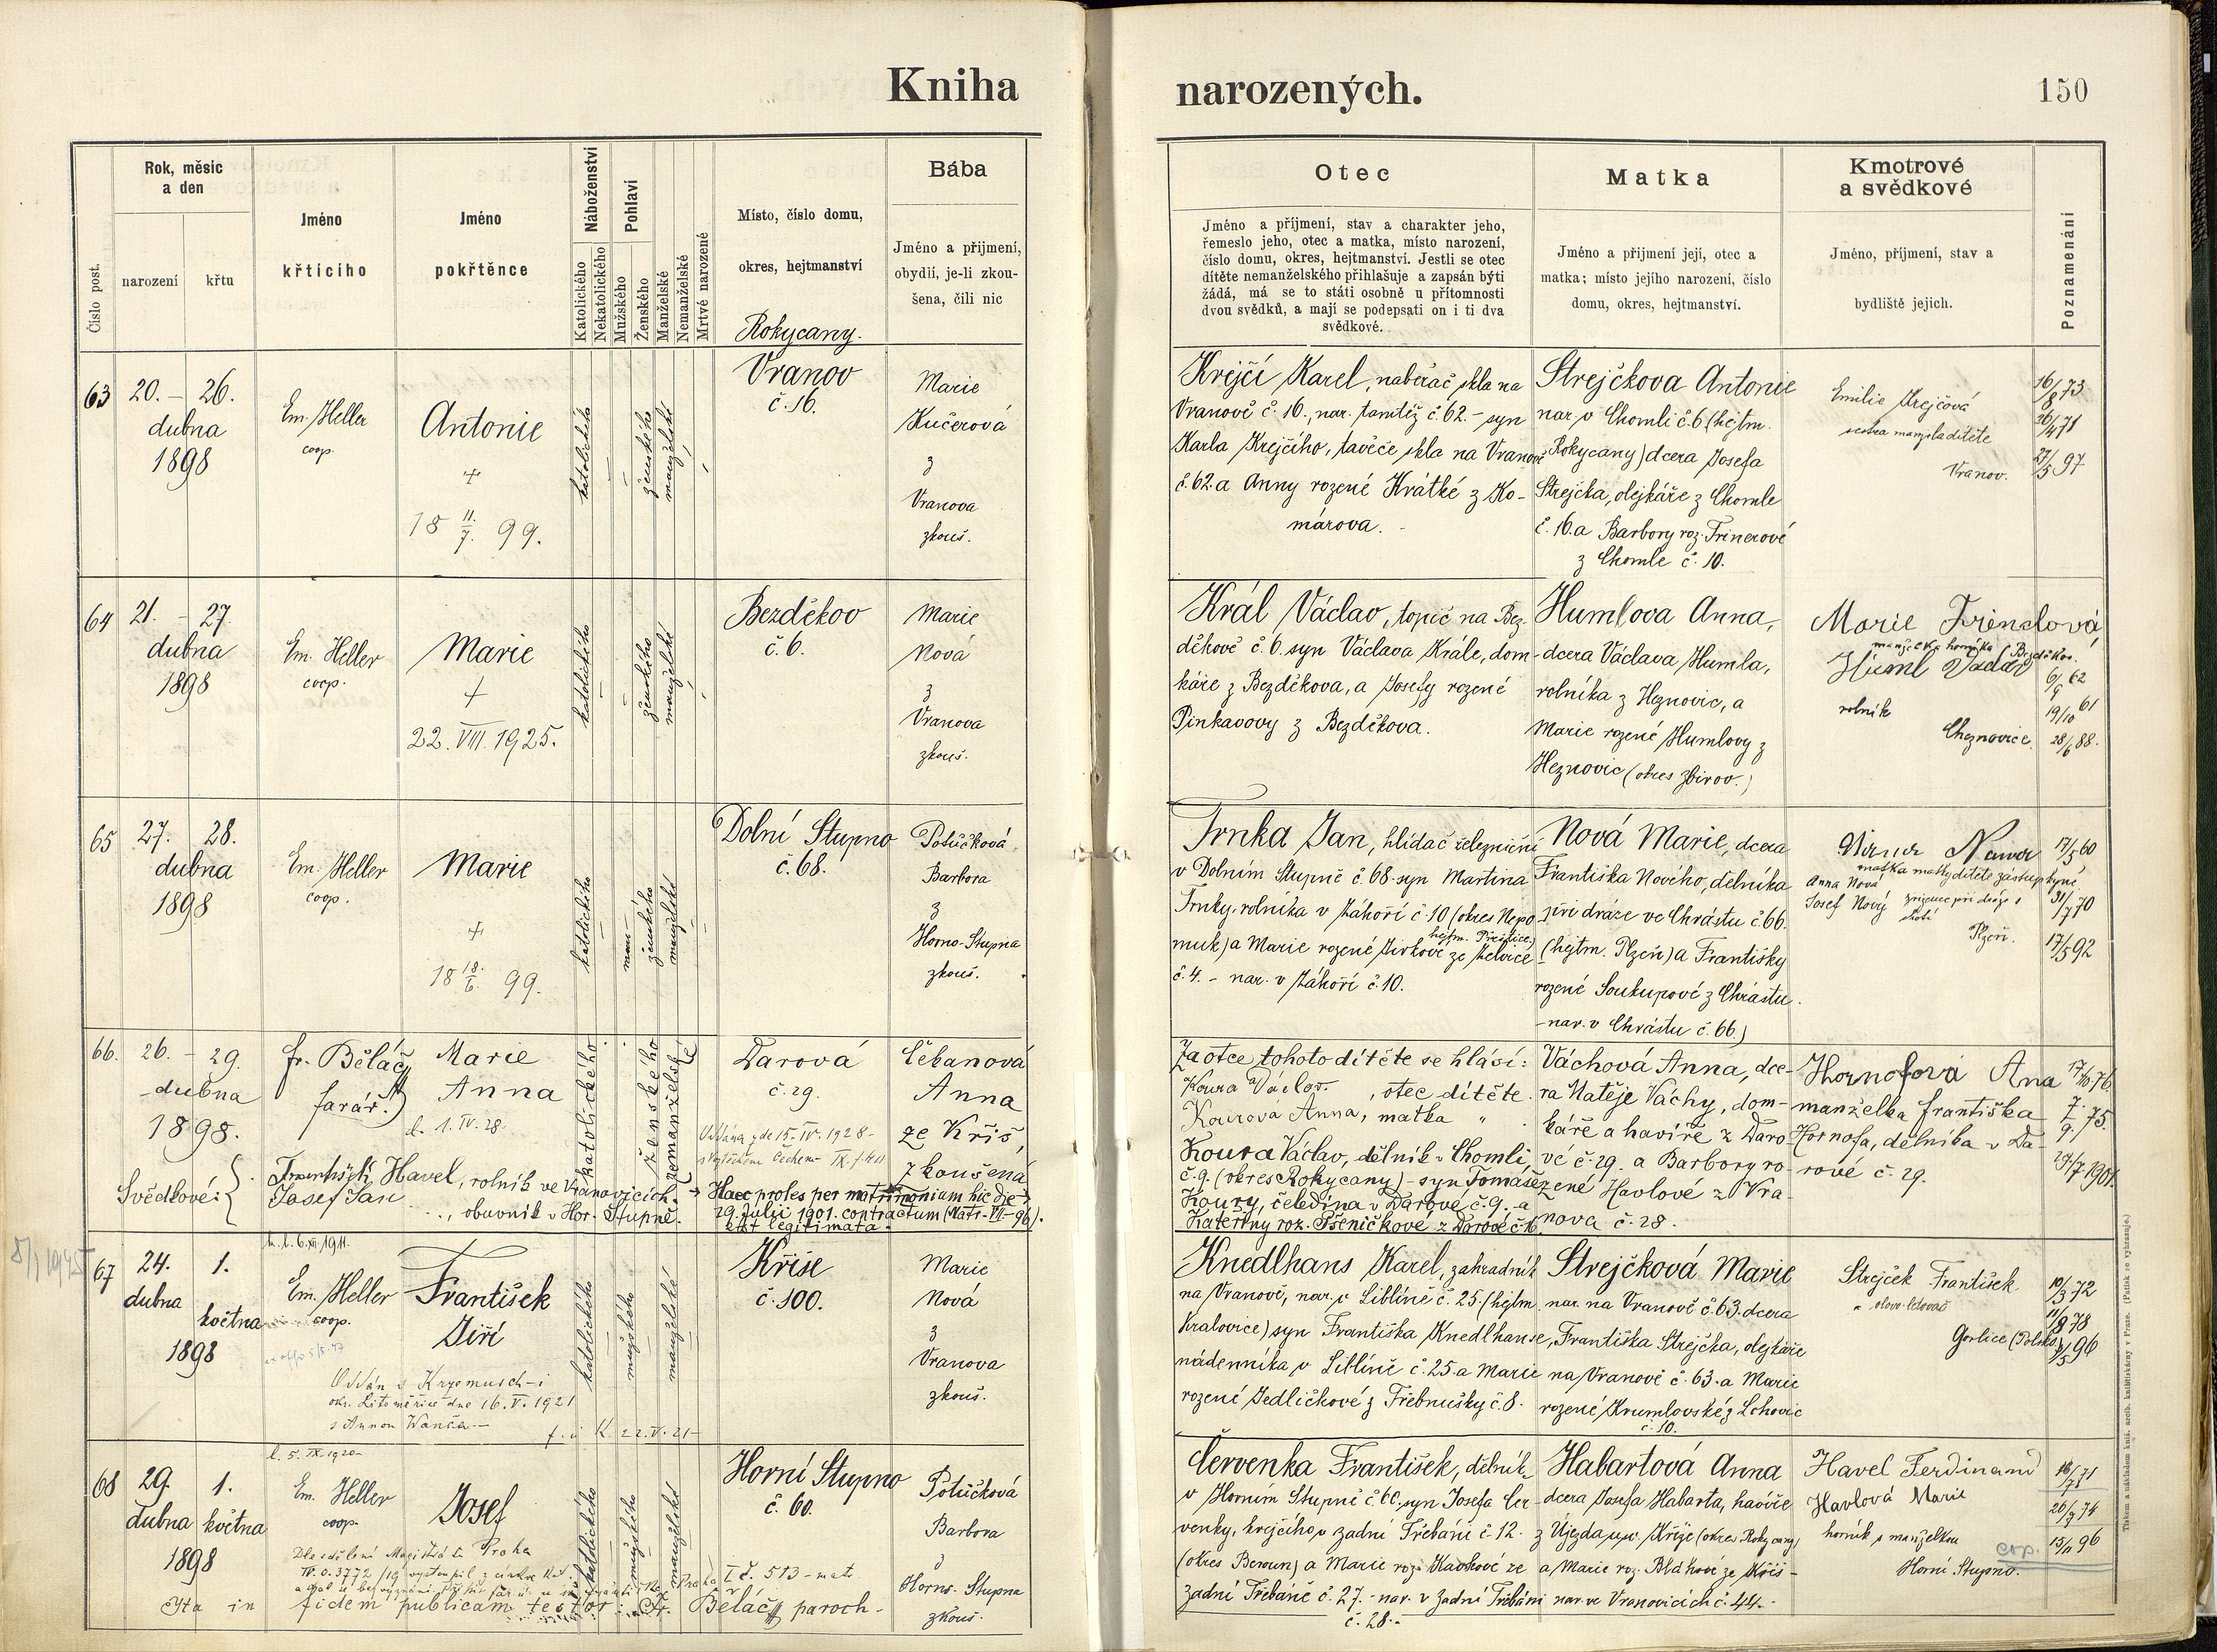 Kniha
narozených.
150
Číslo post.
Rok, měsíc
a den
narození
křtu
Jméno
křtícího
Jméno
pokřtěnce
Náboženství
Katolického
Nekatolického
Pohlaví
Mužského
Ženského
Manželské
Nemanželské
Mrtvé narozené
Místo, číslo domu,
okres, hejtmanství
Rokycany.
Bába
Jméno a příjmení,
obydlí, je-li zkou-
šena, čili nic
Otec
Jméno a příjmení, stav a charakter jeho,
řemeslo jeho, otec a matka, místo narození,
číslo domu, okres, hejtmanství. Jestli se otec
dítěte nemanželského přihlašuje a zapsán býti
žádá, má se to státi osobně u přítomnosti
dvou svědků, a mají se podepsati on i ti dva
svědkové.
Matka
Jméno a příjmení její, otec a
matka; místo jejího narození, číslo
domu, okres, hejtmanství.
Kmotrové
a svědkové
Jméno, příjmení, stav a
bydliště jejich.
Poznamenání
63
20. - 26.
dubna
1898
Em. Heller
coop.
Antonie
+
18 11./7. 99.
katolického
ženského
manželské
Vranov
č. 16.
Marie
Kučerová
z
Vranova
zkouš.
Krejčí Karel, naběrač skla na
Vranově č. 16., nar. tamtéž č. 62. - syn
Karla Krejčího, taviče skla na Vranově
č. 62. a Anny rozené Krátké z Ko-
márova.
Strejčkova Antonie
nar. v Chomli č. 6 (hejtm.
Rokycany) dcera Josefa
Strejčka, olejkáře z Chomle
č. 16. a Barbory roz. Trinerové
z Chomle č. 10.
Emilie Krejčová
sestra manžela dítěte
Vranov.
16/8 73
26/4 71
27/5 97
64
21. - 27.
dubna
1898
Em. Heller
coop.
Marie
+
22. VIII. 1925.
katolického
ženského
manželské
Bezděkov
č. 6.
Marie
Nová
z
Vranova
zkouš.
Král Václav, topič na Bez
děkově č. 6. syn Václava Krále, dom-
káře z Bezděkova, a Josefy rozené
Pinkavovy z Bezděkova.
Humlova Anna,
dcera Václava Humla,
rolníka z Heznovic, a
Marie rozené Humlovy z
Heznovic (okres Zbirov.)
Marie Trinclová
manželka horníka Bezděkov.
Huml Václav
rolník
Cheznovice.
6/9 62
19/10 61
28/6 88.
65
27. 28.
dubna
1898
Em. Heller
coop.
Marie
+
18 18./6. 99.
katolického
ženského
manželské
Dolní Stupno
č. 68.
Potůčková
Barbora
z
Horno-Stupna
zkouš.
Trnka Jan, hlídač železniční
v Dolním Stupně č. 68. syn Martina
Trnky, rolníka v Záhoří č. 10 (okres Nepo
hejtm. Přeštice)
muk) a Marie rozené Jirkové ze Želvice
č. 4. - nar. v Záhoří č. 10.
Nová Marie, dcera
Františka Nového, dělníka
při dráze ve Chrástu č. 66.
(hejtm. Plzeň) a Františky
rozené Soukupové z Chrástu.
- nar. v Chrástu č. 66.)
matka matky dítěte zástupkyně
Anna Nová
Josef Nový zřízenec při dráze
Plzeň.
17/5 60
31/7 70
17/5 92
66.
26. - 29.
dubna
1898.
fr. Běláč
farář.
Marie
Anna
b. 1. IV. 28.
katolického
ženského
nemanželské
Darová
č. 29.
Oddána zde 15. IV. 1928
Čebanová
Anna
ze Kříš,
zkoušená
Svědkové:
František Havel, rolník ve Vranovicích.
Josef Šan
obuvník v Hor. Stupně.
Haec proles per matrimonium hic die
29. Julii 1901. contractum (Matr. VI. - 96).
est legitimata.
Za otce tohoto dítěte se hlásí:
Koura Václav, otec dítěte.
Kourova Anna, matka "
Koura Václav, dělník v Chomli
č. 9. (okres Rokycany) - syn Tomáše
Koury, čeledína v Darové č. 9. a
Kateřiny roz. Pšeničkové z Darové č. 16.
Váchová Anna, dce-
ra Matěje Váchy, dom-
káře a havíře z Daro
vé č. 29. a Barbory ro-
zené Havlové z Vra-
nova č. 28.
Hornofová Ana
manželka františka
Hornofa, dělníka v Da-
rové č. 29.
17/10 76.
7./9. 75.
29/7 1901.
67
24. 1.
dubna
května
1898
b. l. 6. XII. 1911.
Em. Heller
coop.
František
Jiří
Oddán v Krzemusch-i
okr. Litoměřice dne 16. V. 1921
s Annou Wanča
katolického
mužského
manželské
Kříše
č. 100.
Marie
Nová
z
Vranova
zkouš.
Knedlhans Karel, zahradník
na Vranově, nar. v Liblíně č. 25. (hejtm
Kralovice) syn Františka Knedlhanse,
nádenníka v Liblíně č. 25. a Marie
rozené Jedličkové z Třebnušky č. 8.
Strejčková Marie
nar. na Vranově č. 63. dcera
Františka Strejčka, olejkáře
na Vranově č. 63. a Marie
rozené Krumlovské z Lohovic
č. 10.
Strejček František
Gorlice (Polsko)
10/3 72
21/8 78
5/5 96
68
29. 1.
dubna května
1898
b. 5. IX. 1920
Em. Heller
coop.
Josef
Dle sdělení Magistrátu Praha
Ita in fidem publicam testor: Fr. Běláč paroch.
katolického
mužského
manželské
Horní Stupno
č. 60.
Potůčková
Barbora
z
Horno-Stupna
zkouš.
Červenka František, dělník
v Horním Stupně č. 60. syn Josefa Čer-
venky, krejčího v zadní Třebáni č. 12.
(okres Beroun) a Marie roz. Kavkové ze
zadní Třebáně č. 27. - nar. v Zadní Třebáni
č. 28.-
Habartová Anna
dcera Josefa Habarta, havíře
z Újezda u sv. Kříže (okres Rokycany)
a Marie roz. Bláhové ze Kříš -
nar. ve Vranovicích č. 44.
Havel Ferdinand
Havlová Marie
horník s manželkou
Horní Stupno.
cop.
16/7 71
26/7 74
13/11 96